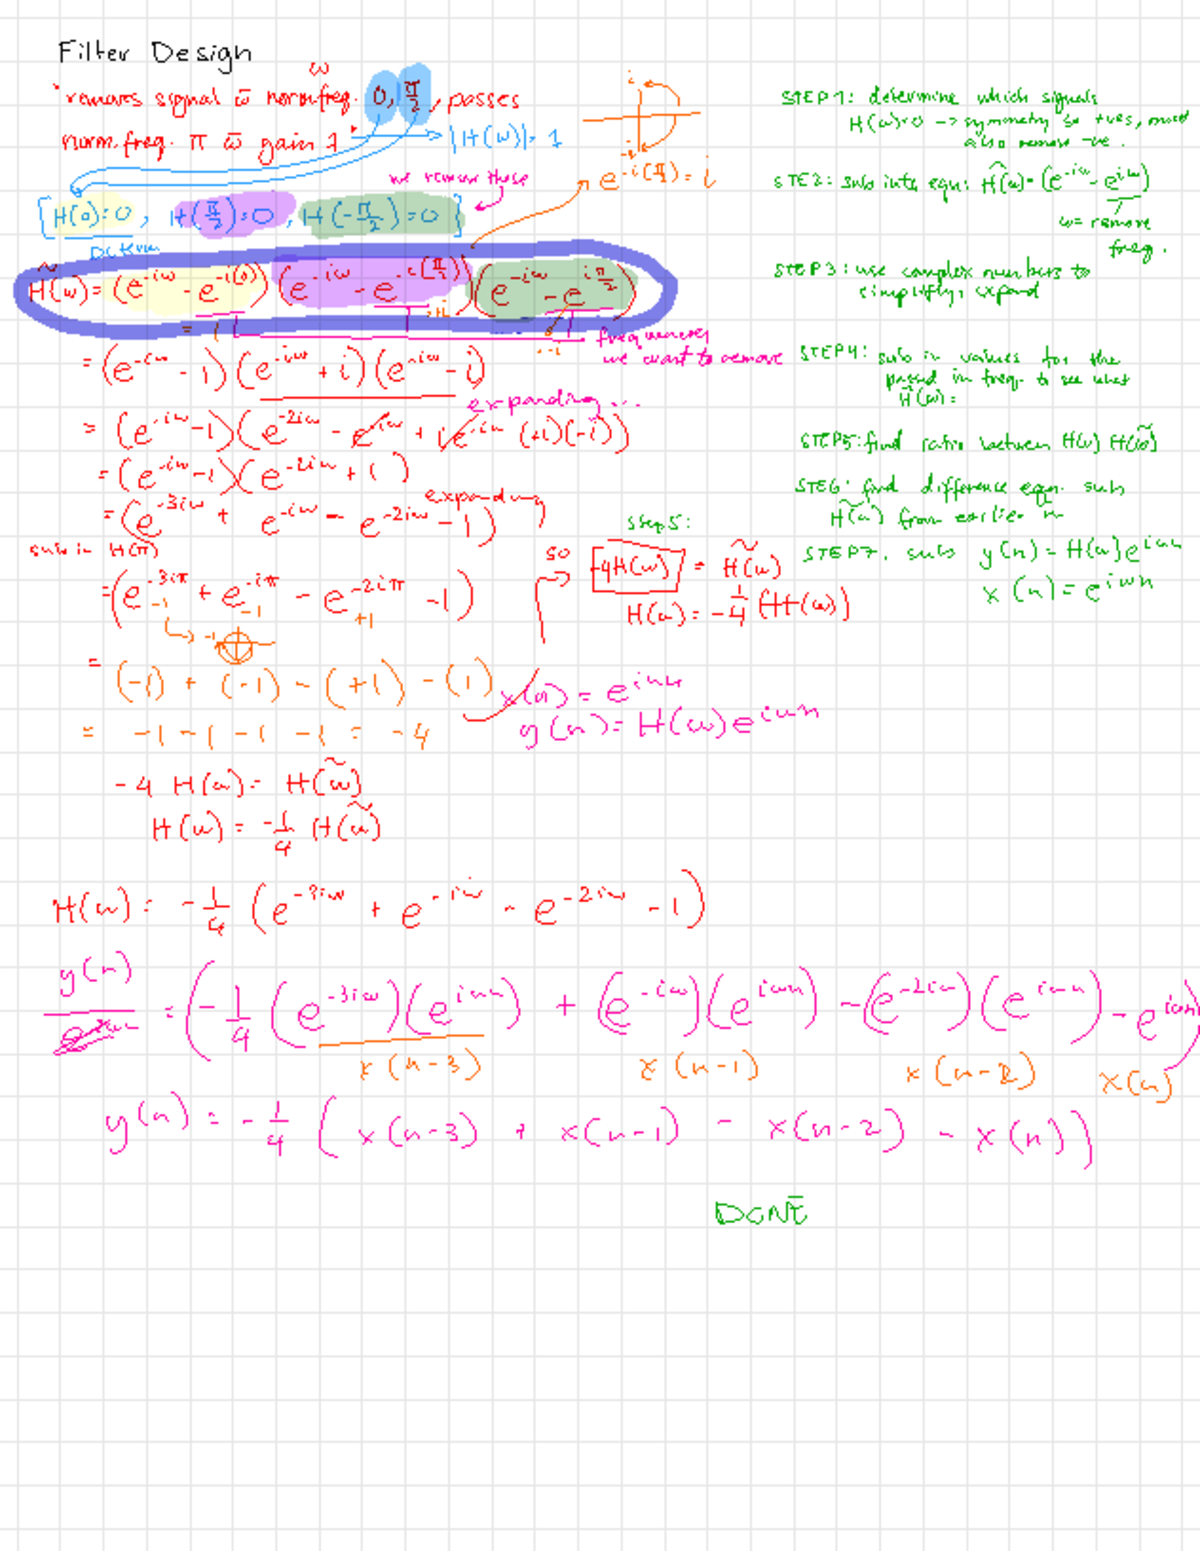 Filter Design
ω
"removes signal w̄ norm.freq. 0, π/2, passes
norm.freq. π w̄ gain 1" → |H(ω)|=1
i
-i
e^-i(π/2) = i
we remove these
[H(0)=0, H(π/2)=0, H(-π/2)=0]
DC term
H̃(ω) = (e^-iω - e^-i(0)) (e^-iω - e^-i(π/2)) (e^-iω - e^iπ/2)
frequencies
we want to remove
= (e^-iω - 1)(e^-iω + i)(e^-iω - i)
expanding...
= (e^-iω - 1)(e^-2iω - e^-iω + i e^-iω (+i)(-i))
= (e^-iω - 1)(e^-2iω + 1)
expanding
= (e^-3iω + e^-iω - e^-2iω - 1)
sub in H(π)
= (e^-3iπ + e^-iπ - e^-2iπ - 1)
-1 -1 +1
↳ -1
= (-1) + (-1) - (+1) - (1)
= -1 -1 -1 -1 = -4
-4 H(ω) = H(ω̃)
H(ω) = -1/4 H(ω̃)
step 5:
so
-4H(ω) = H̃(ω)
H(ω) = -1/4 (H̃(ω))
x(n) = e^iωn
y(n) = H(ω)e^iωn
STEP 1: determine which signals
H(ω)=0 → symmetry so +ves, must
also remove -ve.
STE2: sub into eqn: H̃(ω)=(e^-iω - e^iω)
ω = remove
freq.
STEP 3: use complex numbers to
simplify, expand
STEP4: sub in values for the
passed in freq. to see what
H̃(ω)=
STEP5: find ratio between H(ω) H(ω̃)
STE6: find difference eqn. sub
H(ω̃) from earlier in
STEP7. subs y(n) = H(ω)e^iωn
x(n) = e^iωn
H(ω) = -1/4 (e^-3iω + e^-iω - e^-2iω - 1)
y(n)/e^iωn = (-1/4 (e^-3iω)(e^iωn) + (e^-iω)(e^iωn) - (e^-2iω)(e^iωn) - e^iωn)
x(n-3) x(n-1) x(n-2) x(n)
y(n) = -1/4 (x(n-3) + x(n-1) - x(n-2) - x(n))
DONE